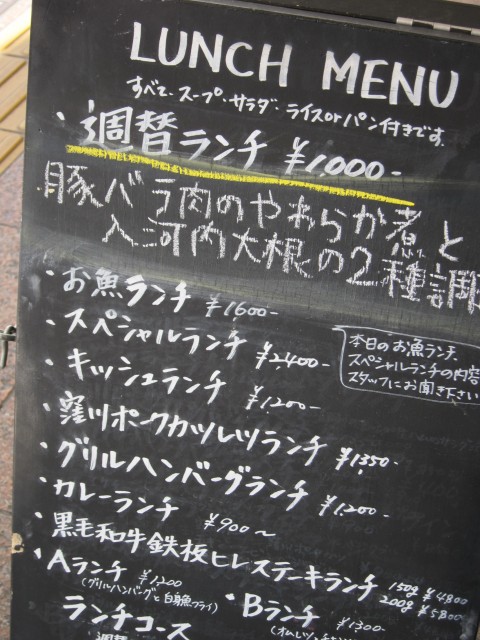 LUNCH MENU
すべて、スープ・サラダ・ライスorパン付きです。
・週替ランチ ¥1,000-
豚バラ肉のやわらか煮と
入河内大根の2種調
・お魚ランチ ¥1600-
・スペシャルランチ ¥2,400-
本日のお魚ランチ、
スペシャルランチの内容
スタッフにお聞き下さい
・キッシュランチ ¥1200-
・窪川ポークカツレツランチ ¥1350-
・グリルハンバーグランチ ¥1,200-
・カレーランチ ¥900〜
・黒毛和牛鉄板ヒレステーキランチ 150g ¥4800
200g ¥5800
・Aランチ ¥1,200
(グリルハンバーグと白身魚フライ)
・Bランチ ¥1300-
ランチコース
週替